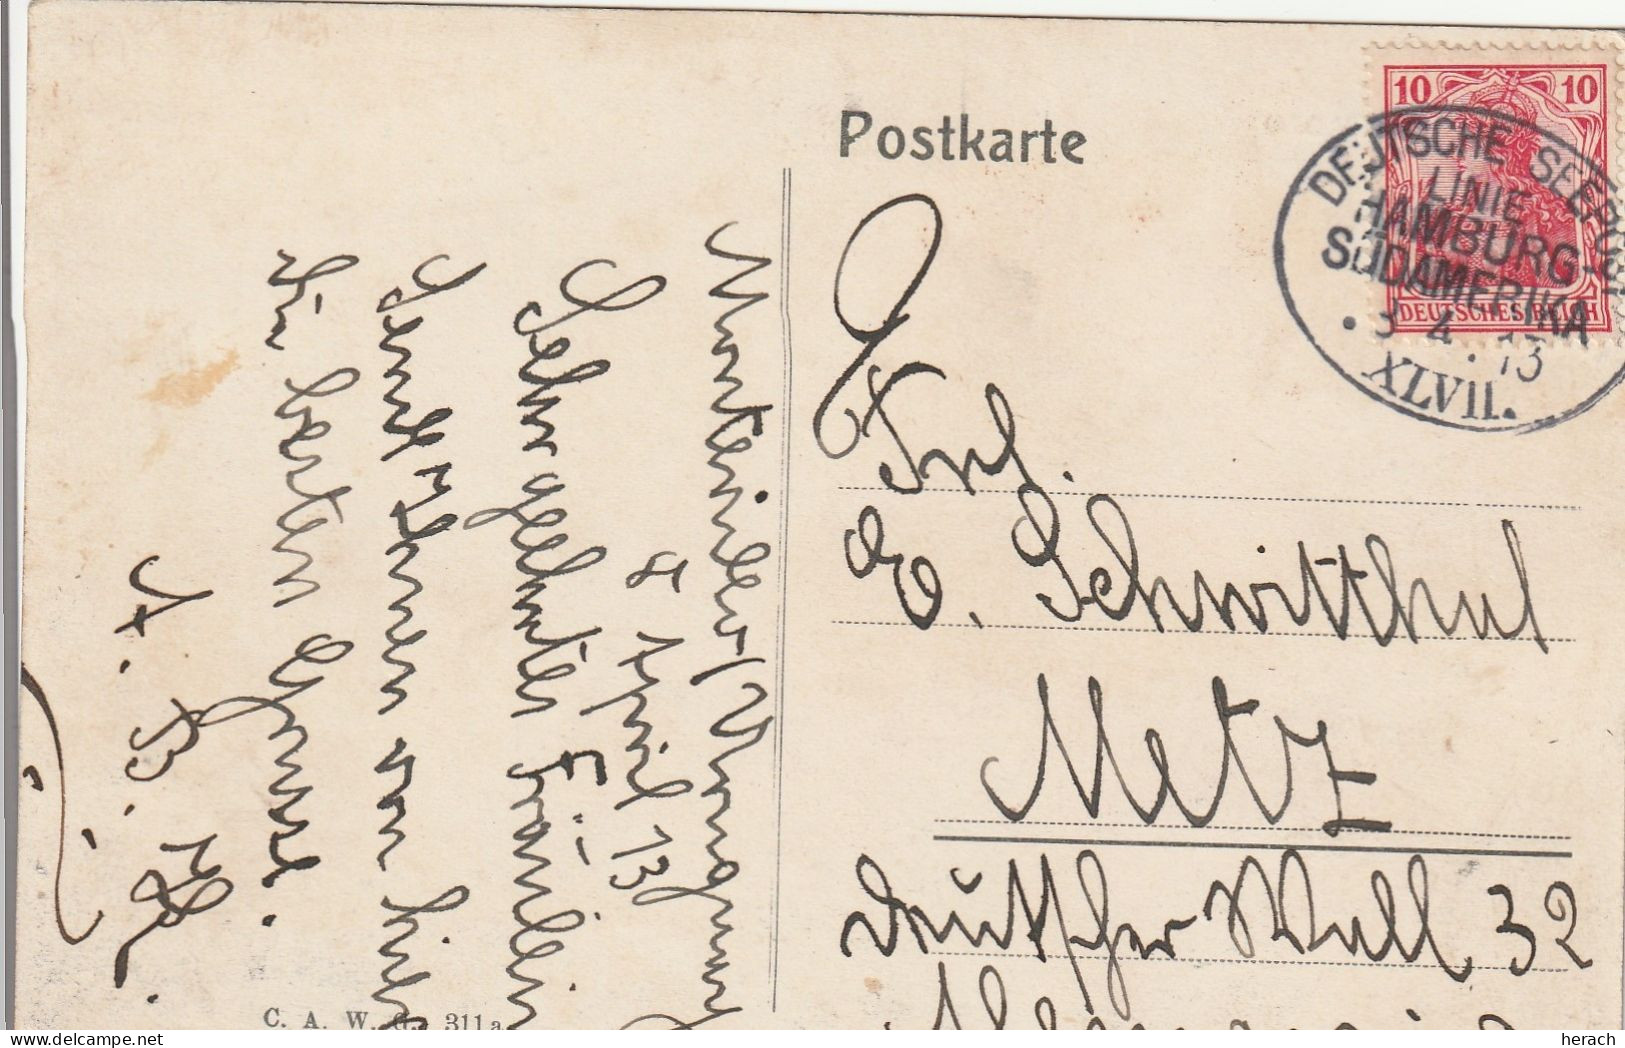 Postkarte
10 10
DEUTSCHES REICH
DEUTSCHE SEEPOST
LINIE
HAMBURG-
SÜDAMERIKA
3 4 · 13
XLVII.
Frl.
E. Schwitthal
Metz
Deutscher Wall 32
Montevideo/Uruguay
8 April 13
Sehr geehrtes Fräulein
von hier
die besten Grüsse.
C. A. W. G. 311a
herach